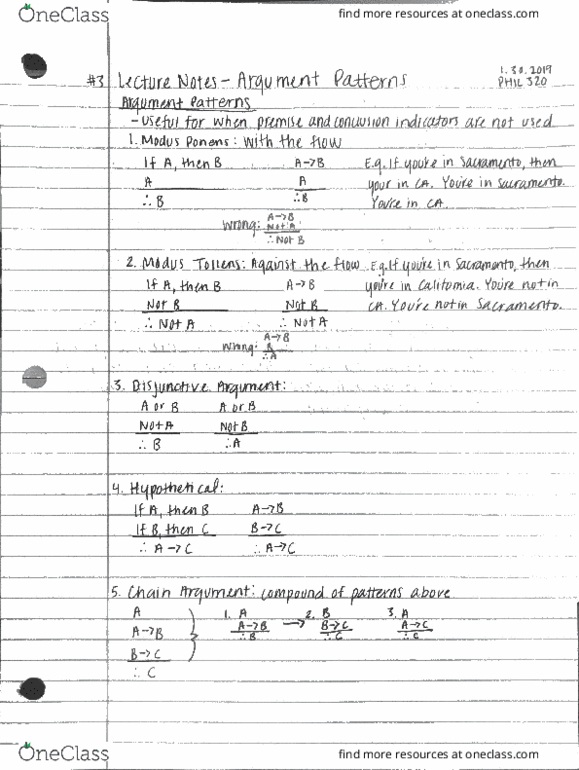 OneClass find more resources at oneclass.com
1.30.2019
#3 Lecture Notes – Argument Patterns PHIL 320
Argument Patterns
- useful for when premise and conclusion indicators are not used
1. Modus Ponens: with the flow
If A, then B A→B E.g. If you're in Sacramento, then
A A your in CA. You're in Sacramento.
∴ B ∴B You're in CA.
Wrong: A→B
Not A
∴ Not B
2. Modus Tollens: Against the flow E.g. If you're in Sacramento, then
If A, then B A→B you're in California. You're not in
Not B Not B CA. You're not in Sacramento.
∴ Not A ∴ Not A
Wrong: A→B
B
∴A
3. Disjunctive Argument:
A or B A or B
Not A Not B
∴ B ∴A
4. Hypothetical:
If A, then B A→B
If B, then C B→C
∴ A→C ∴ A→C
5. Chain Argument: compound of patterns above
A 1. A 2. B 3. A
A→B A→B → B→C A→C
B→C ∴ B ∴ C ∴ C
∴ C
OneClass find more resources at oneclass.com